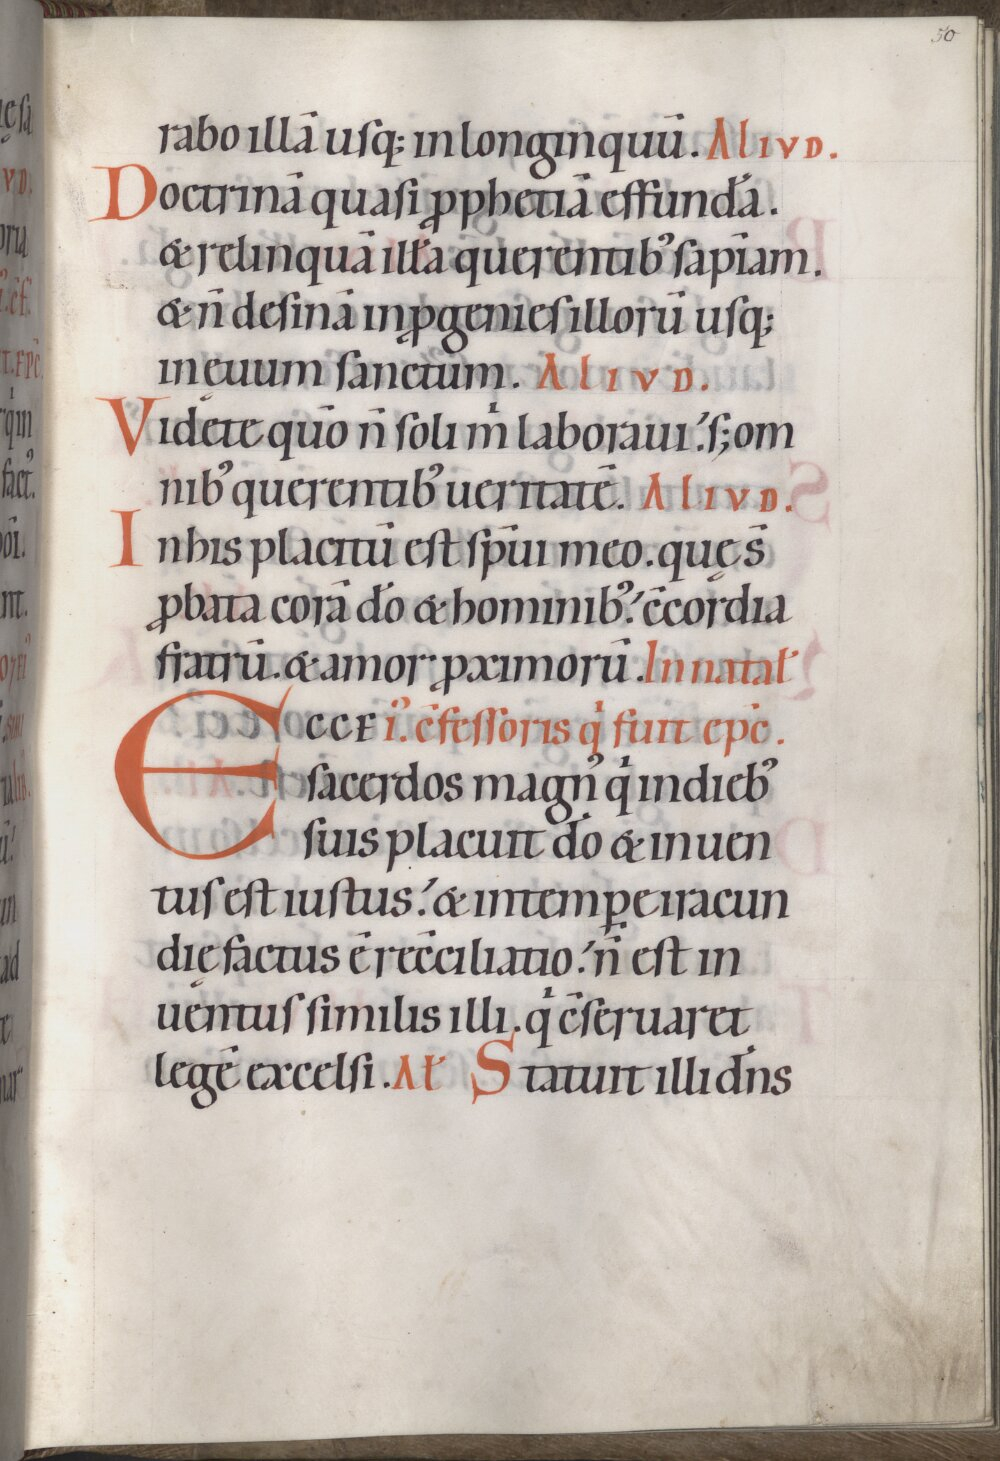 50
rabo illā usq; in longinquū. Aliud.
Doctrinā quasi ꝓphetiā effundā.
& relinquā illā querentib; sapīam.
& n̄ desinā in ꝓgenies illorū usq;
in ęuum sanctum. Aliud.
Videte quō n̄ soli m̄ laboraui. s; om
nib; querentib; ueritatē. Aliud.
In his placitū est sp̄ui meo. quę s̄
ꝓbata corā dō & hominib; c̄cordia
fratrū. & amor ꝓximorū. In natal̄
ECCE i. c̄fessoris q̇ fuit ep̄c.
sacerdos magn; q̇ in dieb;
suis placuit dō & inuen
tus est iustus. & in tempꝑe iracun
dię factus ē rec̄ciliatio. n̄ est in
uentus similis illi. q̇ c̄seruaret
legē excelsi. Al̄ Statuit illi dn̄s